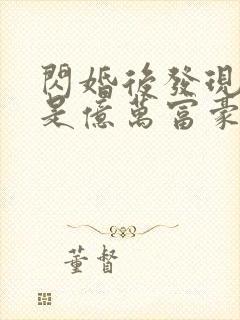 閃婚後發現
是億萬富豪
董督